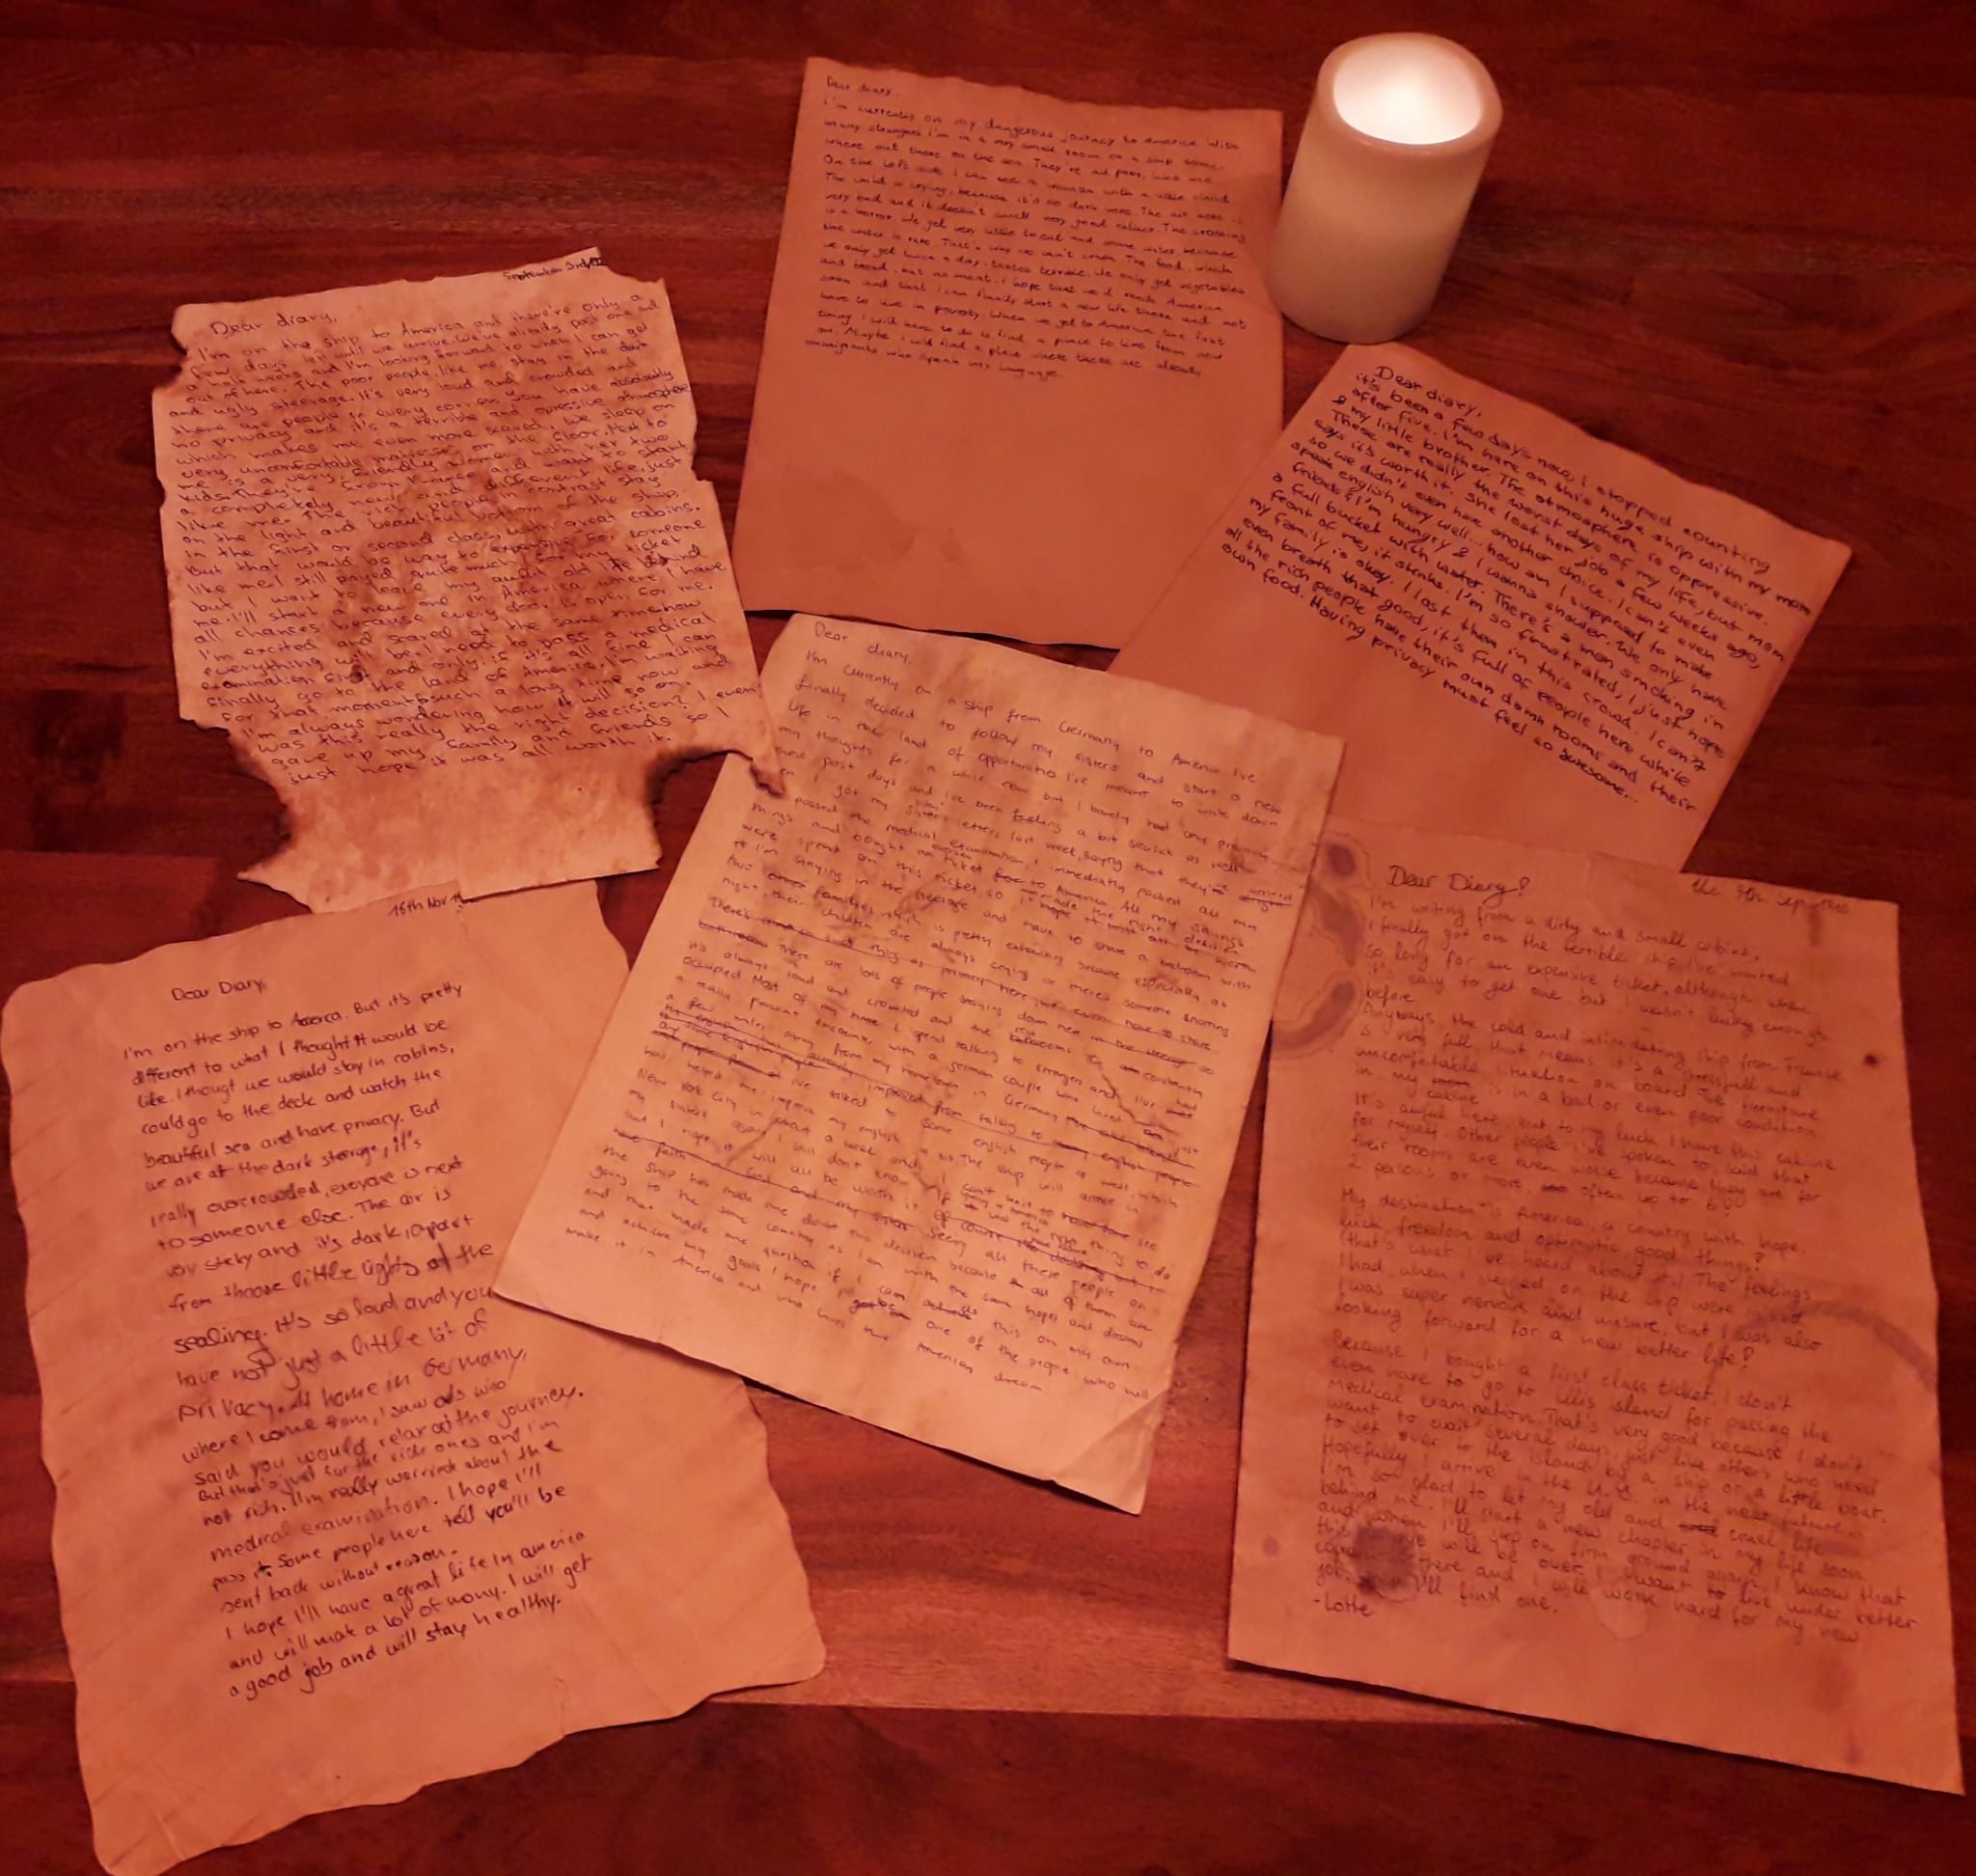 Dear diary,
I'm currently on my dangerous journey to America. With
many strangers I'm in a very small room on a ship some-
where out there on the sea. They're all poor, like me.
On the left side I can see a woman with a little child.
The child is crying, because it's so dark here. The air here is
very bad and it doesn't smell very good either. The crossing
is a horror. We get very little to eat and some water, because
the water is rare. That's why we can't wash. The food, which
we only get twice a day, tastes terrible. We only get vegetables
and bread, but no meat. I hope that we'll reach America
soon and that I can finally start a new life there and not
have to live in poverty. When we get to America the first
thing I will have to do is find a place to live from now
on. Maybe I will find a place where there are already
immigrants who speak my language.
September 3rd
Dear diary,
I'm on the ship to America and there're only a
few days left until we arrive. We've already past one and
a half weeks and I'm looking forward to when I can get
out of here. The poor people, like me, stay in the dark
and ugly steerage. It's very loud and crowded and
there are people in every corner. You have absolutely
no privacy and it's a terrible and opressive atmosphere
which makes me even more scared. We sleep on
very uncomfortable matresses on the floor. Next to
me is a very friendly women with her two
kids. They're from France and want to start
a completely new and different life, just
like me. The rich people in contrast stay
on the light and beautiful bottom of the ship,
in the first or second class, with great cabins.
But that would be way to expensive for someone
like me. I still payed quite much for my ticket
but I want to leave my awful old life behind
me. I'll start a new one in America where I have
all chances because every door is open for me.
I'm excited and scared at the same time how
everything will be. I need to pass a medical
examination first and only if it's all fine I can
finally go to the land of America. I'm waiting
for that moment such a long time now and
I'm always wondering how it will go on.
Was this really the right decision? I even
gave up my family and friends so I
just hope it was all worth it.
Dear diary,
it's been a few days now, I stopped counting
after five. I'm here on this huge ship with my mom
& my little brother. The atmosphere is oppressive.
These are really the worst days of my life, but mom
says it's worth it. She lost her job a few weeks ago,
so we didn't even have another choice. I can't even
speak english very well... how am I supposed to make
friends? I'm hungry & I wanna shower. We only have
a full bucket with water. There's a man smoking in
front of me, it stinks. I'm so frustrated, I just hope
my family is okay. I lost them in this crowd. I can't
even breath that good, it's full of people here while
all the rich people have their own damn rooms and their
own food. Having privacy must feel so awesome...
Dear diary,
I'm currently on a ship from Germany to America. I've
finally decided to follow my sisters and start a new
life in the land of opportunities. I've meant to write down
my thoughts for a while now but I barely had any privacy
these past days and I've been feeling a bit seasick as well.
I got my sisters letter last week, saying that they've arrived
passed the medical examination, I immediately packed all my
things and bought a ticket to America. All my savings
were spent on this ticket so I hope I made the right decision
I'm staying in the steerage and have to share a bedroom with
two families which is pretty exhausting because especially at
night their children are always crying or there's someone snoring
There's
there are lots of people staying down here so
it's always loud and crowded and the bathrooms are constantly
occupied. Most of my time I spend talking to strangers and I just had
a really pleasant encounter with a german couple who lived just
a few miles away from my hometown in Germany
I've talked to some english people as well, which
helped me improve my english a lot. The ship will arrive in
New York City in about a week and I can't wait to see
my sisters again. I still don't know if it was the right thing to do
but I hope it will all be worth it. Seeing all these people on
the ship has made me doubt my decision because all of them are
going to the same country as I am with the same hopes and dreams
and that made me question if I can achieve this on my own
and achieve my goals. I hope I one of the people who will
make it in America and who lives the American dream
16th Nov
Dear Diary,
I'm on the ship to America. But it's pretty
different to what I thought it would be
like. I thougt we would stay in cabins,
could go to the deck and watch the
beautiful sea and have privacy. But
we are at the dark sterage, it's
really overcrowded, eveyone is next
to someone else. The air is
very sticky and it's dark, apart
from thoose little lights at the
sealing. It's so loud and you
have not just a little bit of
privacy. At home in Germany,
where I come from, I saw ads who
said you would relax at the journey.
But that's just for the rich ones and I'm
not rich. I'm really worried about the
medical examination. I hope I'll
pass it. Some people here tell you'll be
sent back without reason.
I hope I'll have a great life in america
and will mat a lot of mony. I will get
a good job and will stay healthy.
the 9th Sep
Dear Diary!
I'm writing from a dirty and small cabine.
I finally got on the terrible ship. I've waited
so long for an expensive ticket, although when
it's easy to get one but I wasn't lucky enough
before
Anyways, the cold and intimidating ship from France
is very full, that means it's a stressfull and
uncomfortable situation on board. The furniture
in my cabine is in a bad or even poor condition
It's awful here, but to my luck I have this cabine
for myself. Other people I've spoken to, said that
their rooms are even worse because they are for
2 persons or more, often up to 6!
My destination is America, a country with hope,
luck, freedom and optimistic good things!
(that's what I've heard about it) The feelings
I had, when I stepped on the ship were mixed
I was super nervous and unsure, but I was also
looking forward for a new better life!
Because I bought a first class ticket, I don't
even have to go to Ellis island for passing the
medical examination. That's very good because I don't
want to wait several days, just like others who need
to get over to the island by a ship or a little boat.
Hopefully I arrive in the U.S. in the near future.
I'm so glad to let my old and cruel life
behind me. I'll start a new chapter in my life soon
and when I'll step on firm ground again, I know that
this will be over. I want to live under better
there and I will work hard for my new
job. I'll find one.
-Lotte